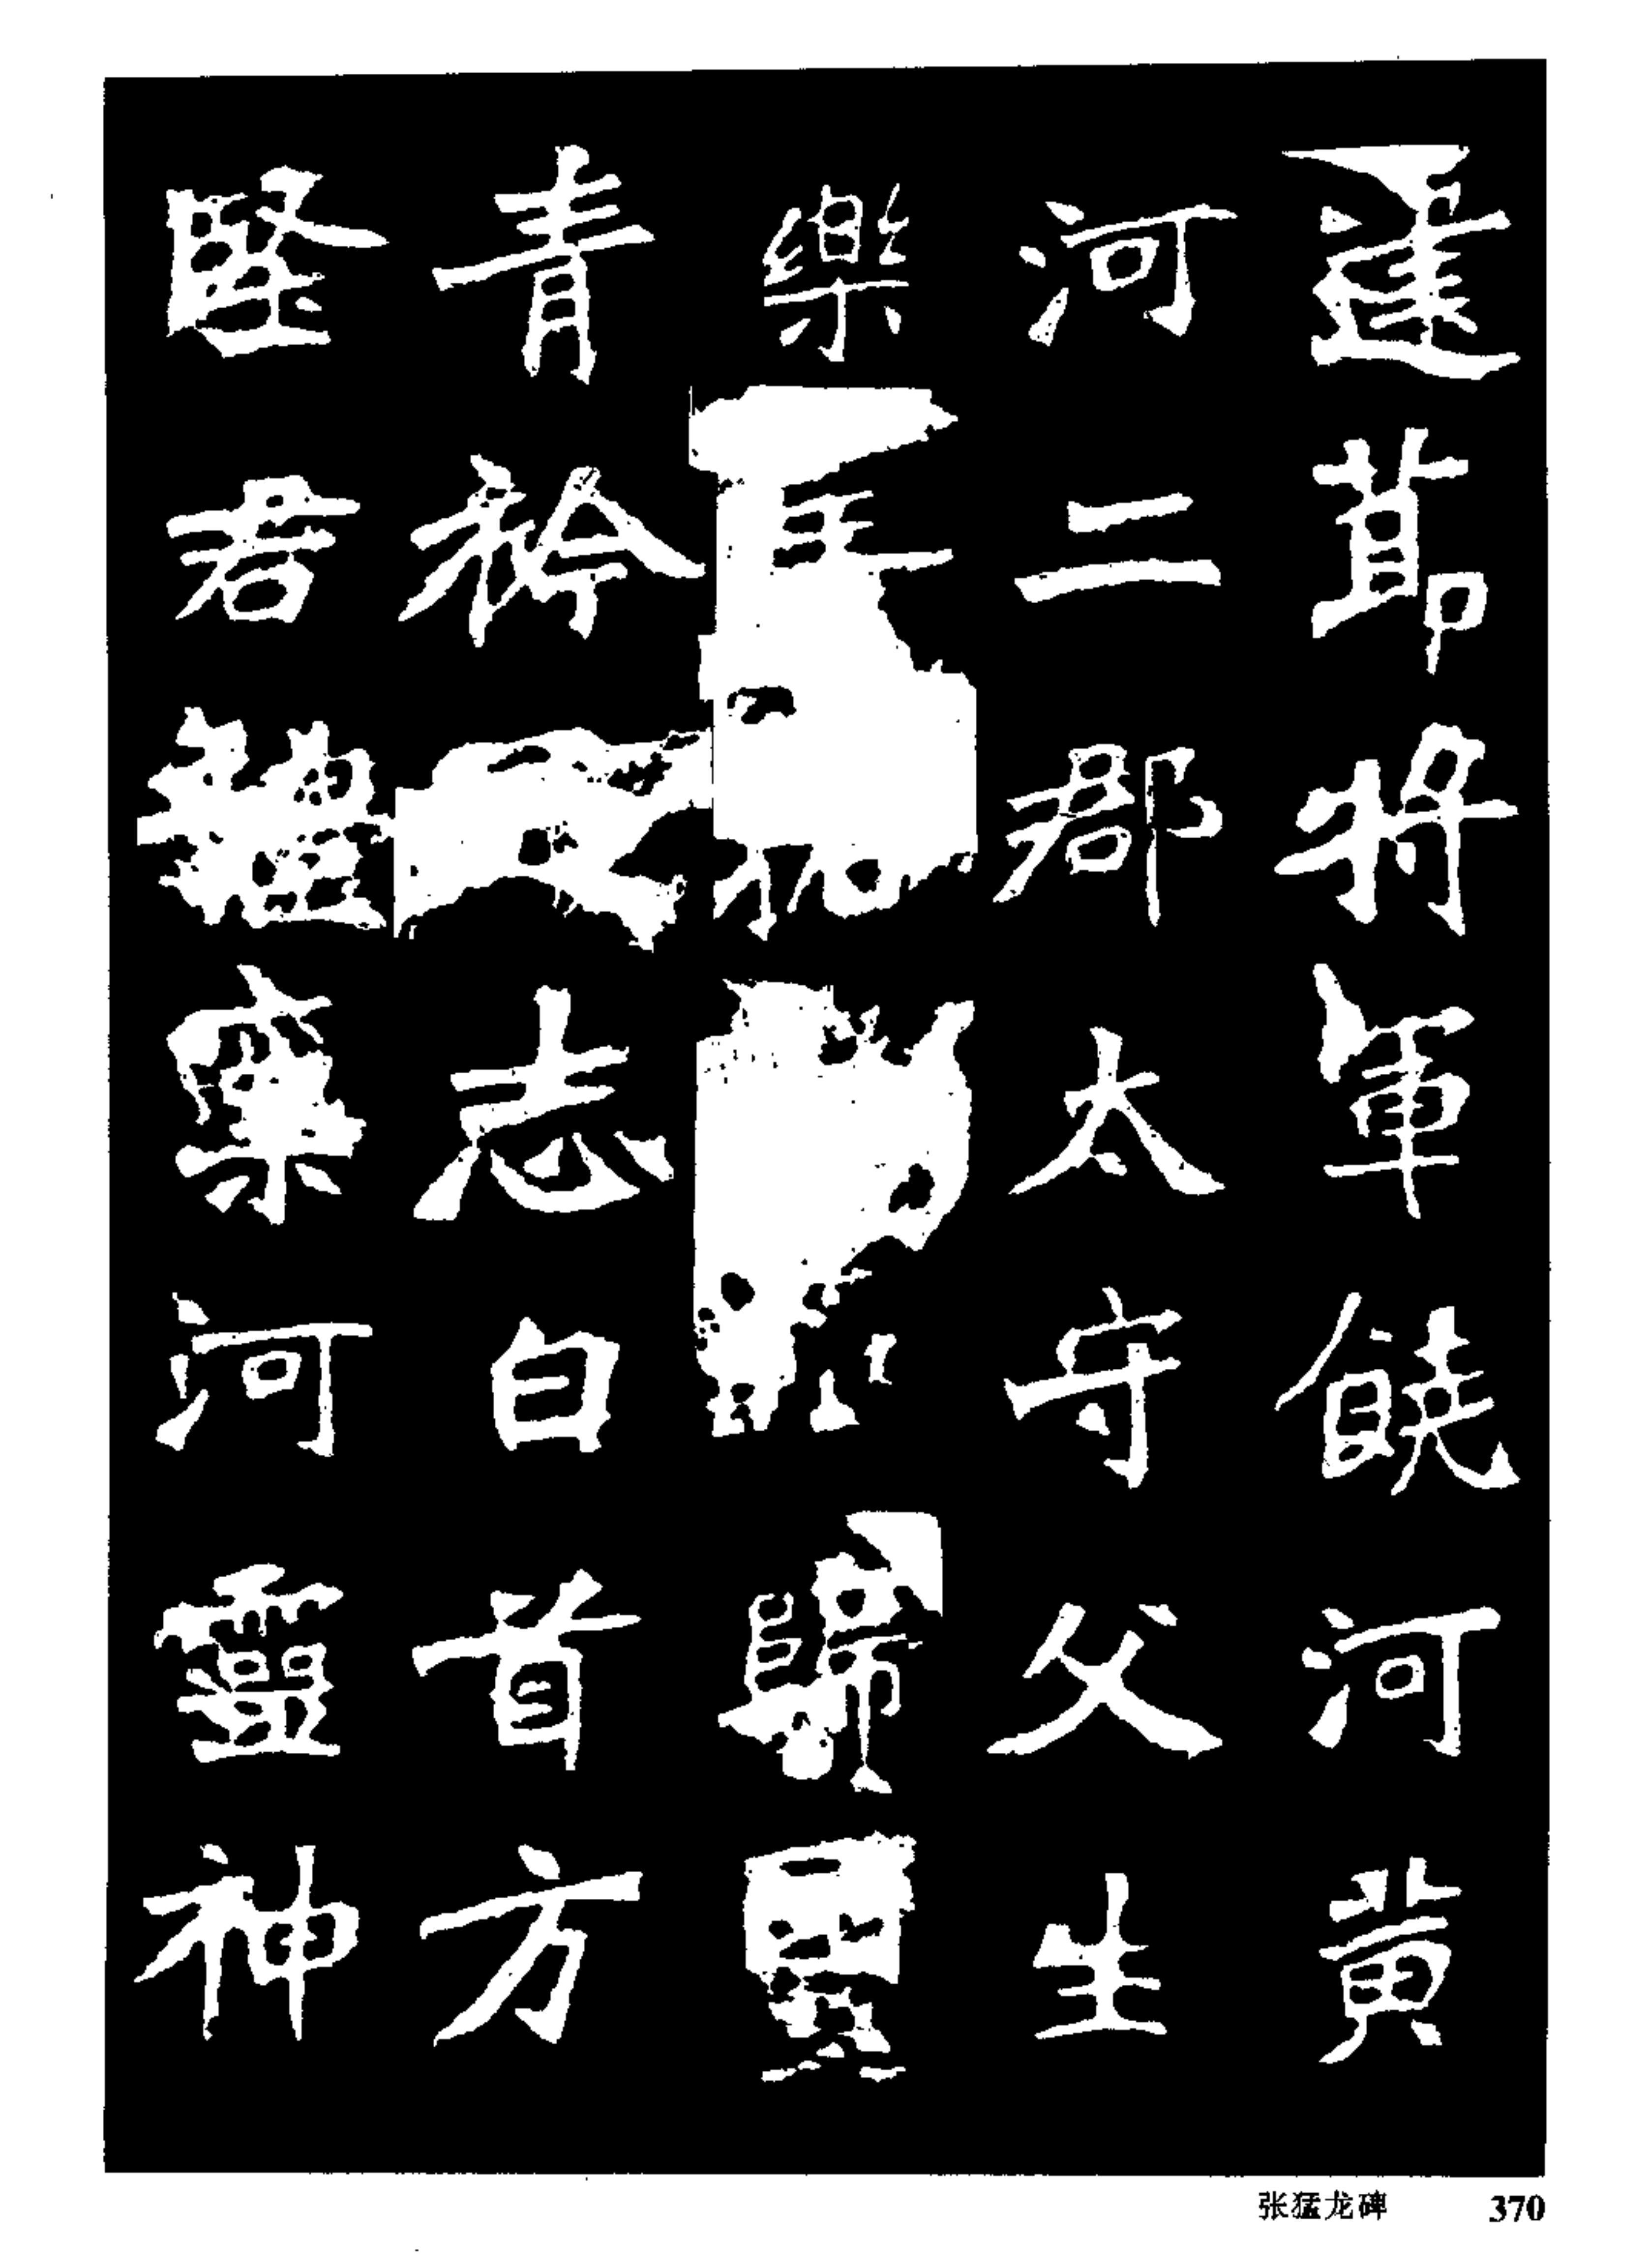 建節將軍饒河黃
河二郡太守父生
樂歸
青衿志白首方
堅君體稟河靈神
张猛龙碑 370